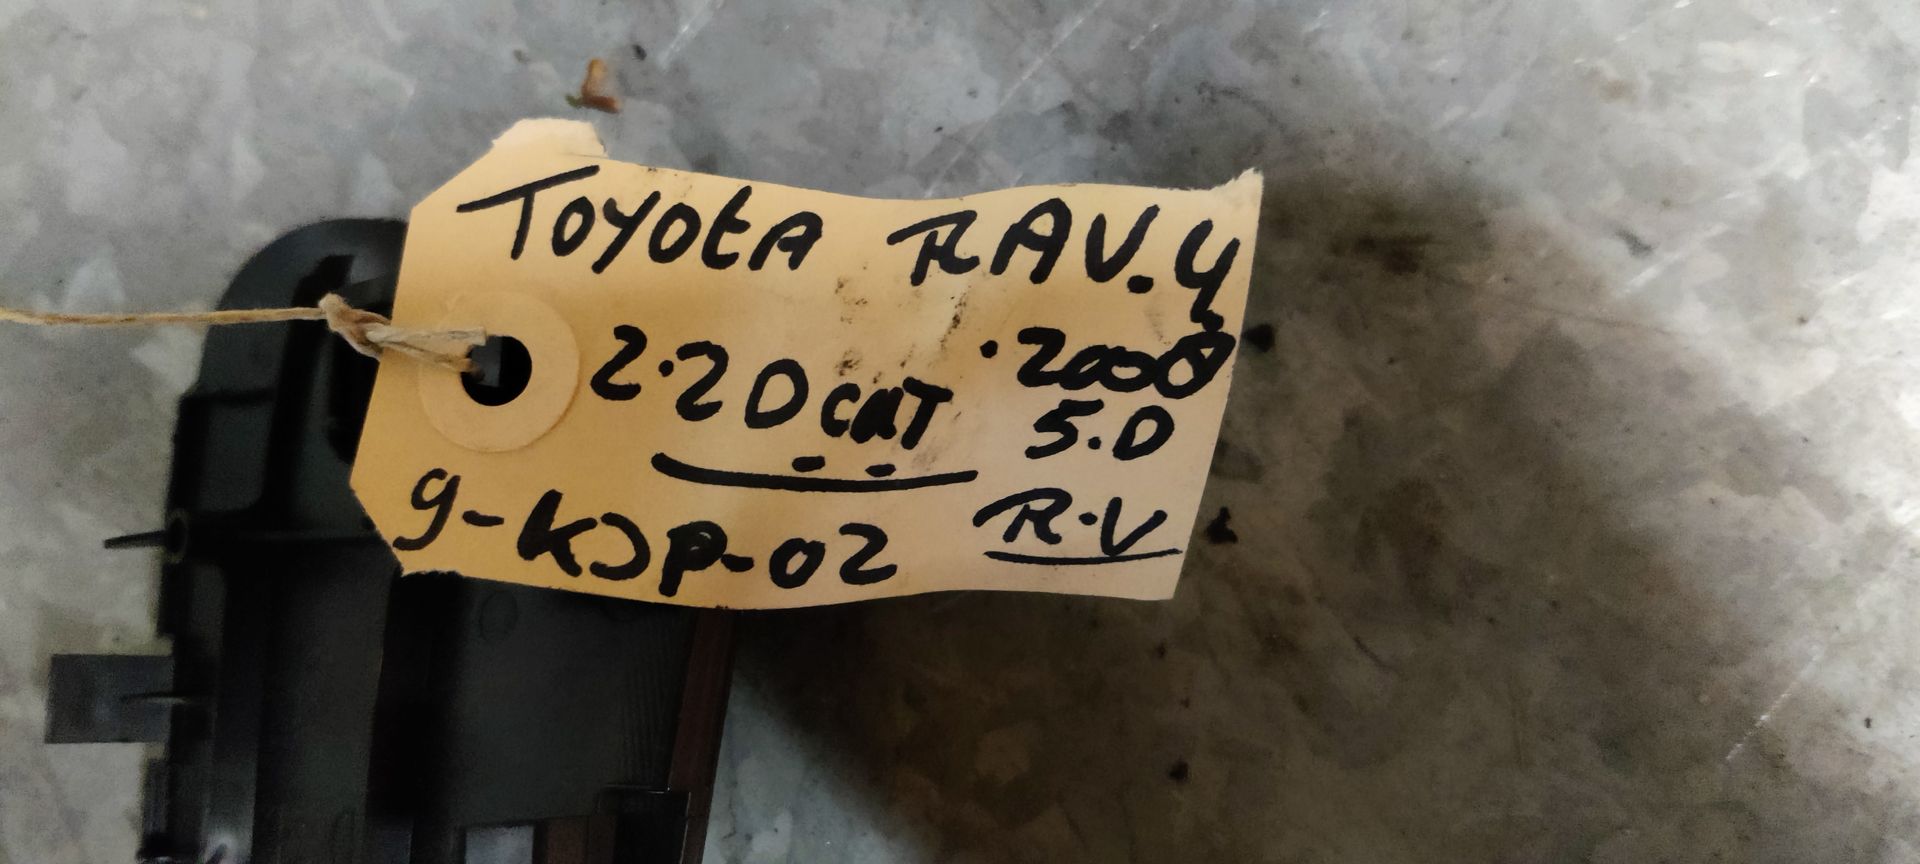 TOYOTA RAV.4
2.2 D CAT .2008
5.D
9-KJP-02 R.V